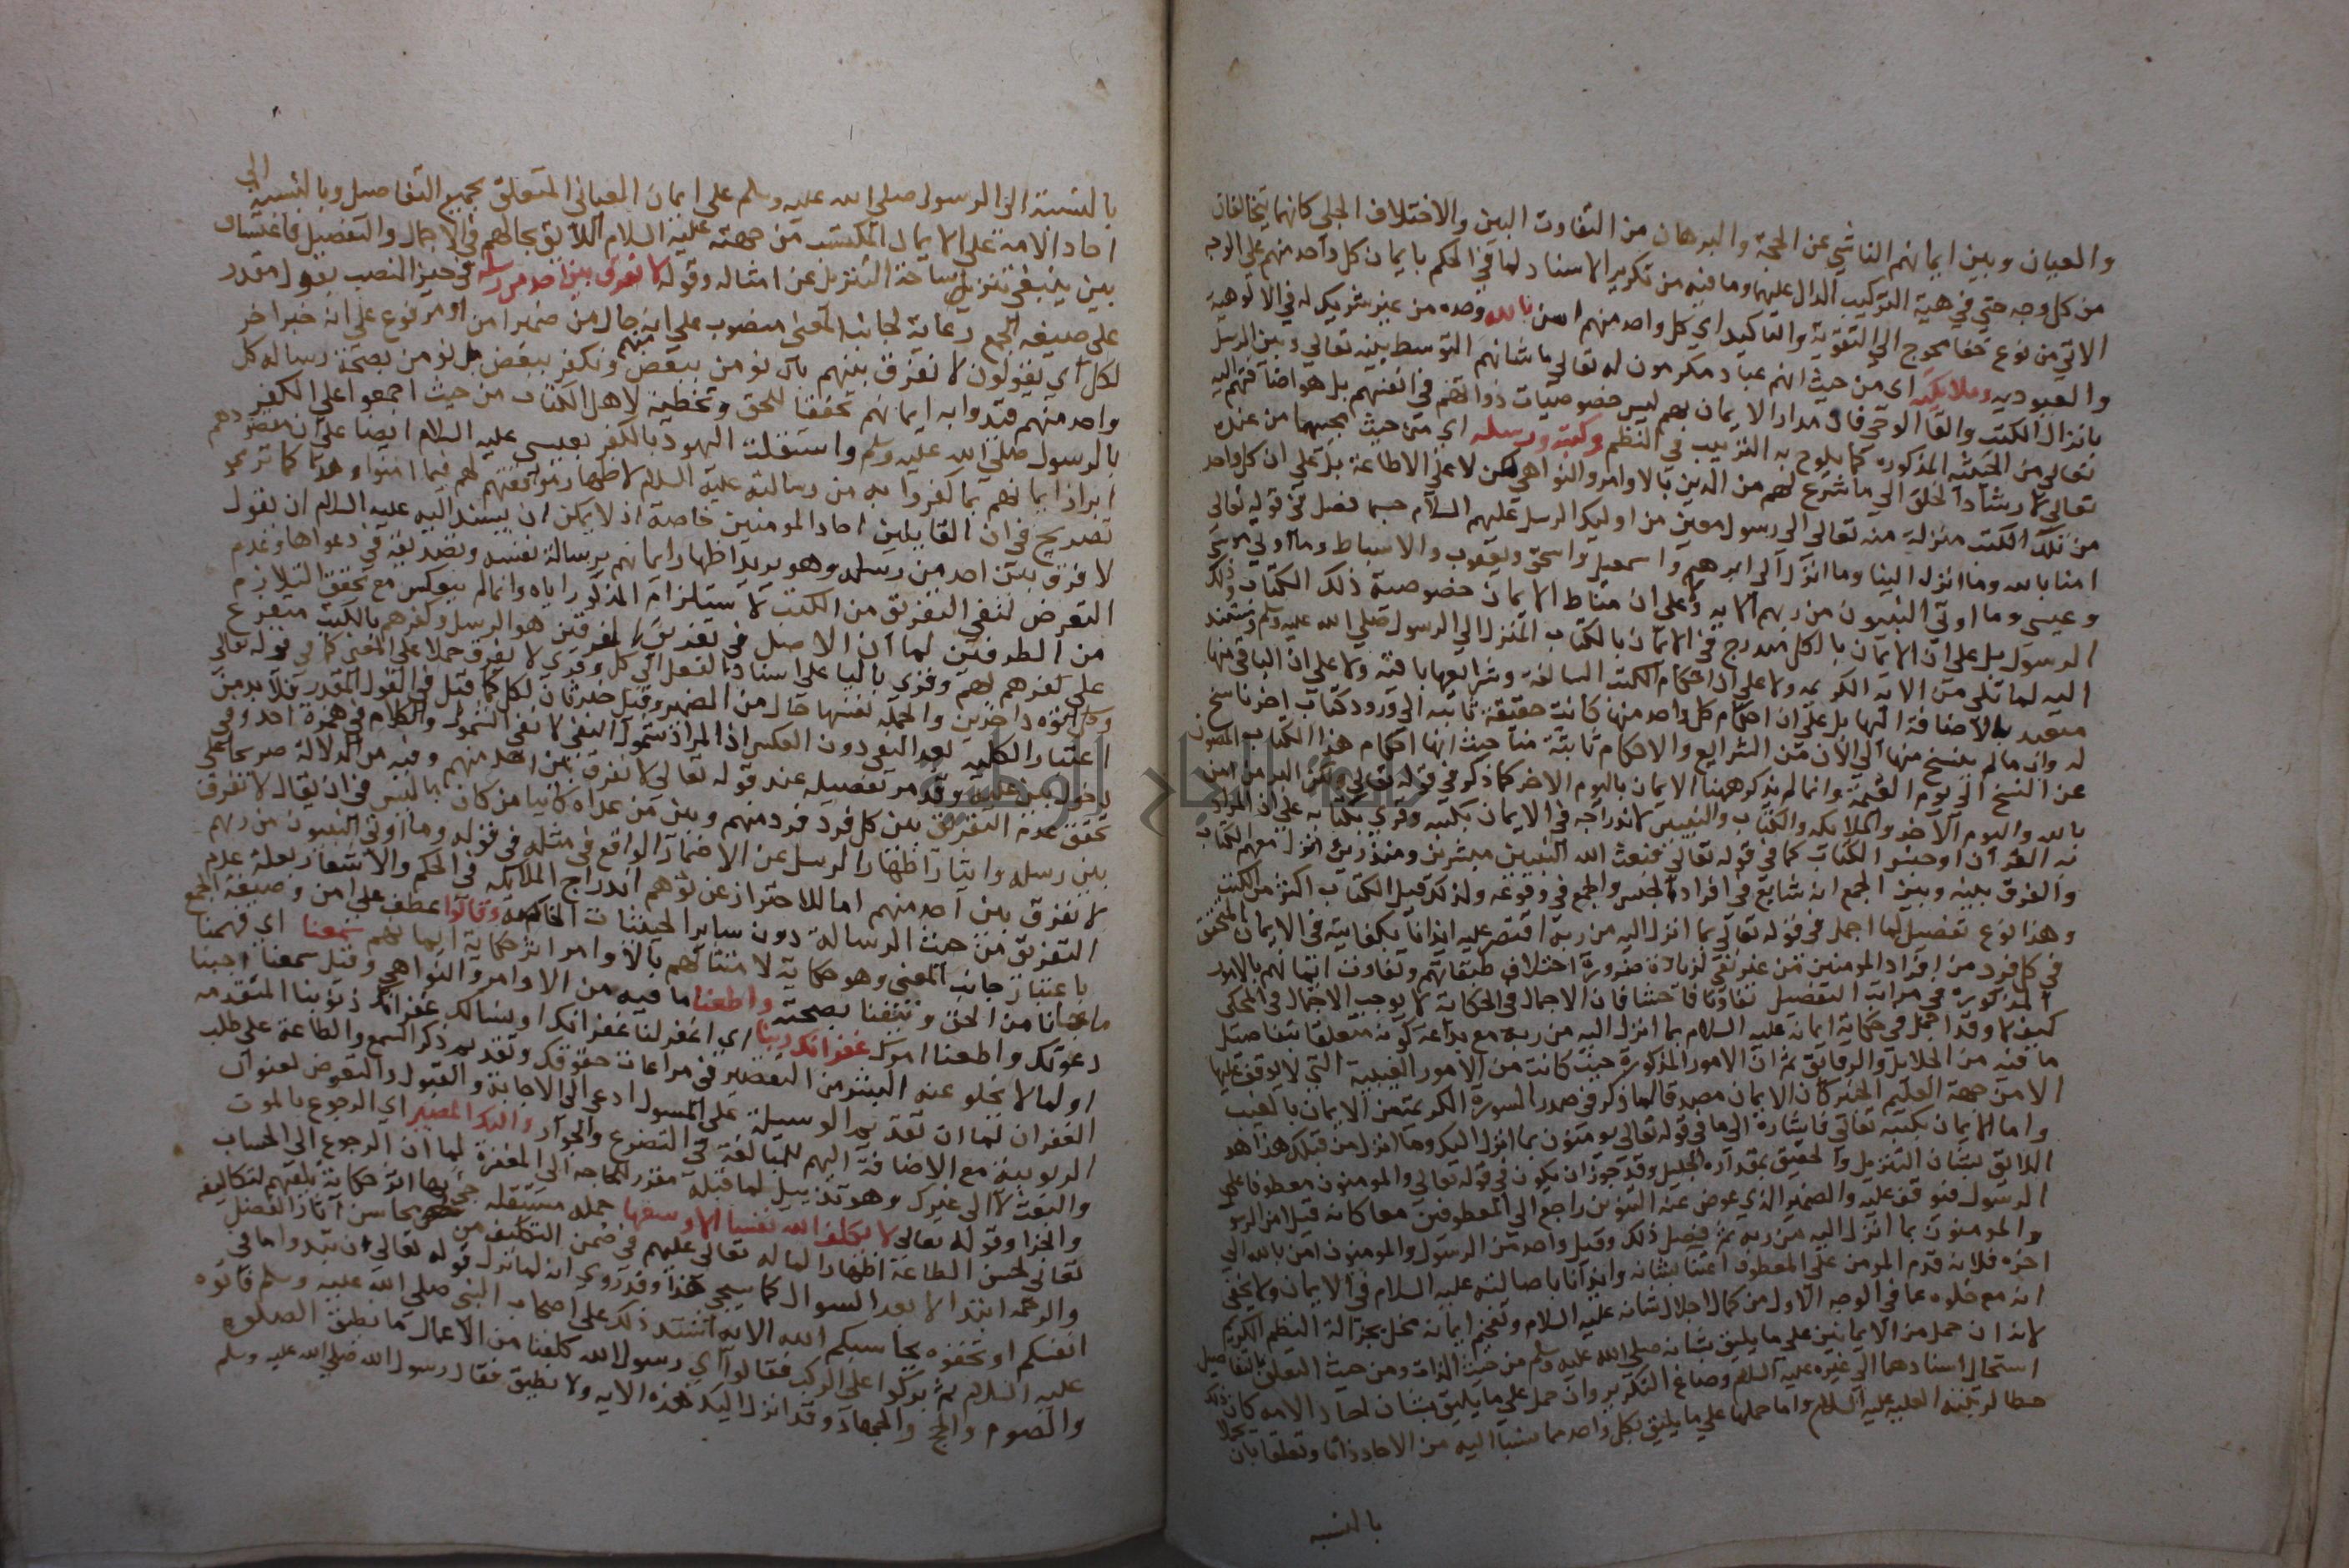 والعيان وبين ايمانهم الناشي عن الحجة والبرهان من التفاوت البين والاختلاف الجلي كانهما يتخالفان
من كل وجه حتي في هية التركيب الدال عليهما وما فيه من تكرير الاسناد لما في الحكم بايمان كل واحد منهم علي الوجه
الاتي من نوع خفا محوج الي التقوية والتاكيد اي كل واحد منهم امن بالله وحده من غير شريك له في الالوهية
والعبوديه وملايكته اي من حيث انهم عباد مكرمون له تعالي ما شانهم التوسط بينه تعالي وبين الرسل
بانزال الكتب والقا الوحي فان مدار الايمان بهم ليس خصوصيات ذواتهم في انفسهم بل هو اضافتهم اليه
تعالي من الحيثية المذكوره كما يلوح به الترتيب في النظم وكتبه ورسله اي من حيث مجيهما من عنده
تعالي لارشاد الخلق الي ما شرع لهم من الدين بالاوامر والنواهي لكن لا علي الاطاعة بل علي ان كل واحد
من تلك الكتب منزلة منه تعالي الي رسول معين من اوليك الرسل عليهم السلام حسبما فصل في قوله تعالي
امنا بالله وما انزل الينا وما انزل الي ابرهيم واسمعيل واسحق ويعقوب والاسباط وما اوتي موسي
وعيسي وما اوتي النبيون من ربهم الايه ولا علي ان مناط الايمان خصوصية ذلك الكتاب وذلك
الرسول بل علي ان الايمان بالكل مندرج في الايمان بالكتاب المنزل الي الرسول صلي الله عليه وسلم ومستند
اليه لما تلي من الايه الكريمه ولا علي ان احكام الكتب السالفة وشرايعها باقية ولا علي ان الباقي منها
معتبر بالاضافة اليها بل علي ان احكام كل واحد منها كانت حقيقة ثابتة الي ورود كتاب اخر ناسخ
له وان ما لم ينسخ منها الي الان من الشرايع والاحكام ثابتة من حيث انها احكام هذا الكتاب المصون
عن النسخ الي يوم القيمة وانما لم يذكر ههنا الايمان باليوم الاخر كما ذكر في قوله تعالي ولكن البر من امن
بالله واليوم الاخر والملايكه والكتاب والنبيين لاندراجه في الايمان بكتبه وقري وكتابه علي ان المراد
به القران او جنس الكتاب كما في قوله تعالي فبعث الله النبيين مبشرين ومنذرين وانزل معهم الكتاب
والفرق بينه وبين الجمع انه شايع في افراد الجنس والجمع في جموعه ولذلك قيل الكتاب اكثر من الكتب
وهذا نوع تفصيل لما اجمل في قوله تعالي بما انزل اليه من ربه اقتصر عليه ايذانا بكفايته في الايمان المتحقق
في كل فرد من افراد المومنين من غير نفي لزيادة ضرورة اختلاف طبقاتهم وتفاوت ايمانهم بالامور
المذكوره في مراتب التفصيل تفاوتا فاحشا فان الاجمال في الحكاية لا يوجب الاجمال في المحكي
كيف لا وقد اجمل في حكاية ايمانه عليه السلام بما انزل اليه من ربه مع بداهة كونه متعلقا بتفاصيل
ما فيه من الجلايل والدقايق ثم ان الامور المذكورة حيث كانت من الامور الغيبية التي لا يوقف عليها
الا من جهة العليم الخبير كان الايمان مصدقا لما ذكر في صدر السورة الكريمة من الايمان بالغيب
واما الايمان بكتبه تعالي فاشارة الي ما في قوله تعالي يومنون بما انزل اليك وما انزل من قبلك هذا هو
اللائق بشان التنزيل والحقيق بمقداره الجليل وقد جوز ان يكون في قوله تعالي والمومنون معطوفا علي
الرسول فيوقف عليه والضمير الذي عوض عنه التنوين راجع الي المعطوفين معا كانه قيل امن الرسول
والمومنون بما انزل اليه من ربه ثم فصل ذلك وقيل واحد من الرسول والمومنون امن بالله الي
اخره فلانه قدم المومن علي المعطوف اعتنا بشانه وايذانا باصالته عليه السلام في الايمان ولا يخفي
انه مع خلوه عما في الوجه الاول من كمال اجلال شانه عليه السلام وتفخيم ايمانه مخل بجزالة النظم الكريم
لانه ان حمل من الايمانين علي ما يليق بشانه صلي الله عليه وسلم من حيث الذات ومن حيث التعلق بالتفاصيل
استحال اسنادهما الي غيره عليه السلام وضاع التكرير وان حمل علي ما يليق بشان احاد الامه كان ذلك
حطا لرتبته العليه عليه السلام واما حملهما علي ما يليق بكل واحد مما نسبا اليه من الاحاد ذاتا وتعلقا بان يحملا
بالنسبه
بالنسبة الي الرسول صلي الله عليه وسلم علي ايمان العياني المتعلق بجميع التفاصيل وبالنسبة الي
احاد الامة علي الايمان المكتسب من جهته عليه السلام اللائق بحالهم في الاجمال والتفصيل فاعتساف
بين ينبغي تنزيه ساحة التنزيل عن امثاله وقوله لا نفرق بين احد من رسله في حيز النصب بقول مقدر
علي صيغه الجمع رعاية لجانب المعني منصوب علي انه حال من ضمير امن او مرفوع علي انه خبر اخر
لكل اي يقولون لا نفرق بينهم بان نومن ببعض منهم ونكفر ببعض بل نومن بصحة رسالة كل
واحد منهم قيدوا به ايمانهم تحقيقا للحق وتخطية لاهل الكتاب من حيث اجمعوا علي الكفر
بالرسول صلي الله عليه وسلم واستقلت اليهود بالكفر بعيسي عليه السلام ايضا علي ان مقصودهم
ابراز ايمانهم بما كفروا به من رسالته عليه السلام لاظهار موافقتهم لهم فيما امنوا وهذا كما تري
تصريح في ان القايلين احاد المومنين خاصة اذ لا يمكن ان يسند اليه عليه السلام ان نقول
لا فرق بين احد من رسله وهو يريد اظهار ايمانهم برسالة نفسه وتصديقه في دعواها وعدم
التعرض لنفي التفريق من الكتب لاستلزام المذكور اياه وانما لم يعكس مع تحقق التلازم
من الطرفين لما ان الاصل في تفريق المفرقين هو الرسل وكفرهم بالكتب متفرع
علي كفرهم بهم وقري باليا علي اسناد الفعل الي كل وقري لا يفرقون حملا علي المعني كما في قوله تعالي
وكل اتوه داخرين والجمله نفسها حال من الضمير وقيل خبر ثان لكل كما قيل في القول المقدر فلابد من
اعتبار الكليه بعد النفي دون العكس اذ المراد شمول النفي لا نفي الشمول والكلام في همزة احد وفي
دخول بين عليه وقد مر تفصيله عند قوله تعالي لا نفرق بين احد منهم وفيه من الدلالة صريحا علي
تحقق عدم التفريق بين كل فرد فرد منهم وبين من عداه كاينا من كان ما ليس في ان يقال لا نفرق
بين رسله وايثار اظهار الرسل عن الاضمار الواقع في مثله في قوله وما اوتي النبيون من ربهم
لا نفرق بين احد منهم اما للاحتراز عن توهم اندراج الملايكه في الحكم والاشعار بعلة عدم
التفريق من حيث الرسالة دون ساير الحيثيات الخاصة وقالوا عطف علي امن وصيغة الجمع
باعتبار جانب المعني وهو حكاية لامتثالهم بالاوامر اثر حكاية ايمانهم سمعنا اي فهمنا
ما جانا من الحق وتيقنا بصحته واطعنا ما فيه من الاوامر والنواهي وقيل سمعنا اجبنا
دعوتك واطعنا امرك غفرانك ربنا اي اغفر لنا غفرانك او نسالك غفرانك ذنوبنا المتقدمه
او لما لا يخلو عنه البشر من التقصير في مراعات حقوقك وتقديم ذكر السمع والطاعة علي طلب
الغفران لما ان تقديم الوسيلة علي المسول ادعي الي الاجابة والقبول والتعرض لعنوان
الربوبية مع الاضافة اليهم للمبالغة في التضرع والجوار واليك المصير اي الرجوع بالموت
والبعث لا الي غيرك وهو تذييل لما قبله مقرر للحاجه الي المغفرة لما ان الرجوع الي الحساب
والجزا وقوله تعالي لا يكلف الله نفسا الا وسعها جمله مستقله جي بها اثر حكاية تلقيهم لتكاليفه
تعالي بحسن الطاعة اظهارا لما له تعالي عليهم في ضمن التكليف من محاسن اثار الفضل
والرحمه ابتدا لا بعد السوال كما سيجي هذا وقد روي انه لما نزل قوله تعالي ان تبدوا ما في
انفسكم او تخفوه يحاسبكم الله الايه اشتد ذلك علي اصحاب النبي صلي الله عليه وسلم فاتوه
عليه السلام ثم بركوا علي الركب فقالوا اي رسول الله كلفنا من الاعمال ما نطيق الصلوة
والصوم والحج والجهاد وقد انزل اليك هذه الايه ولا نطيق فقال رسول الله صلي الله عليه وسلم